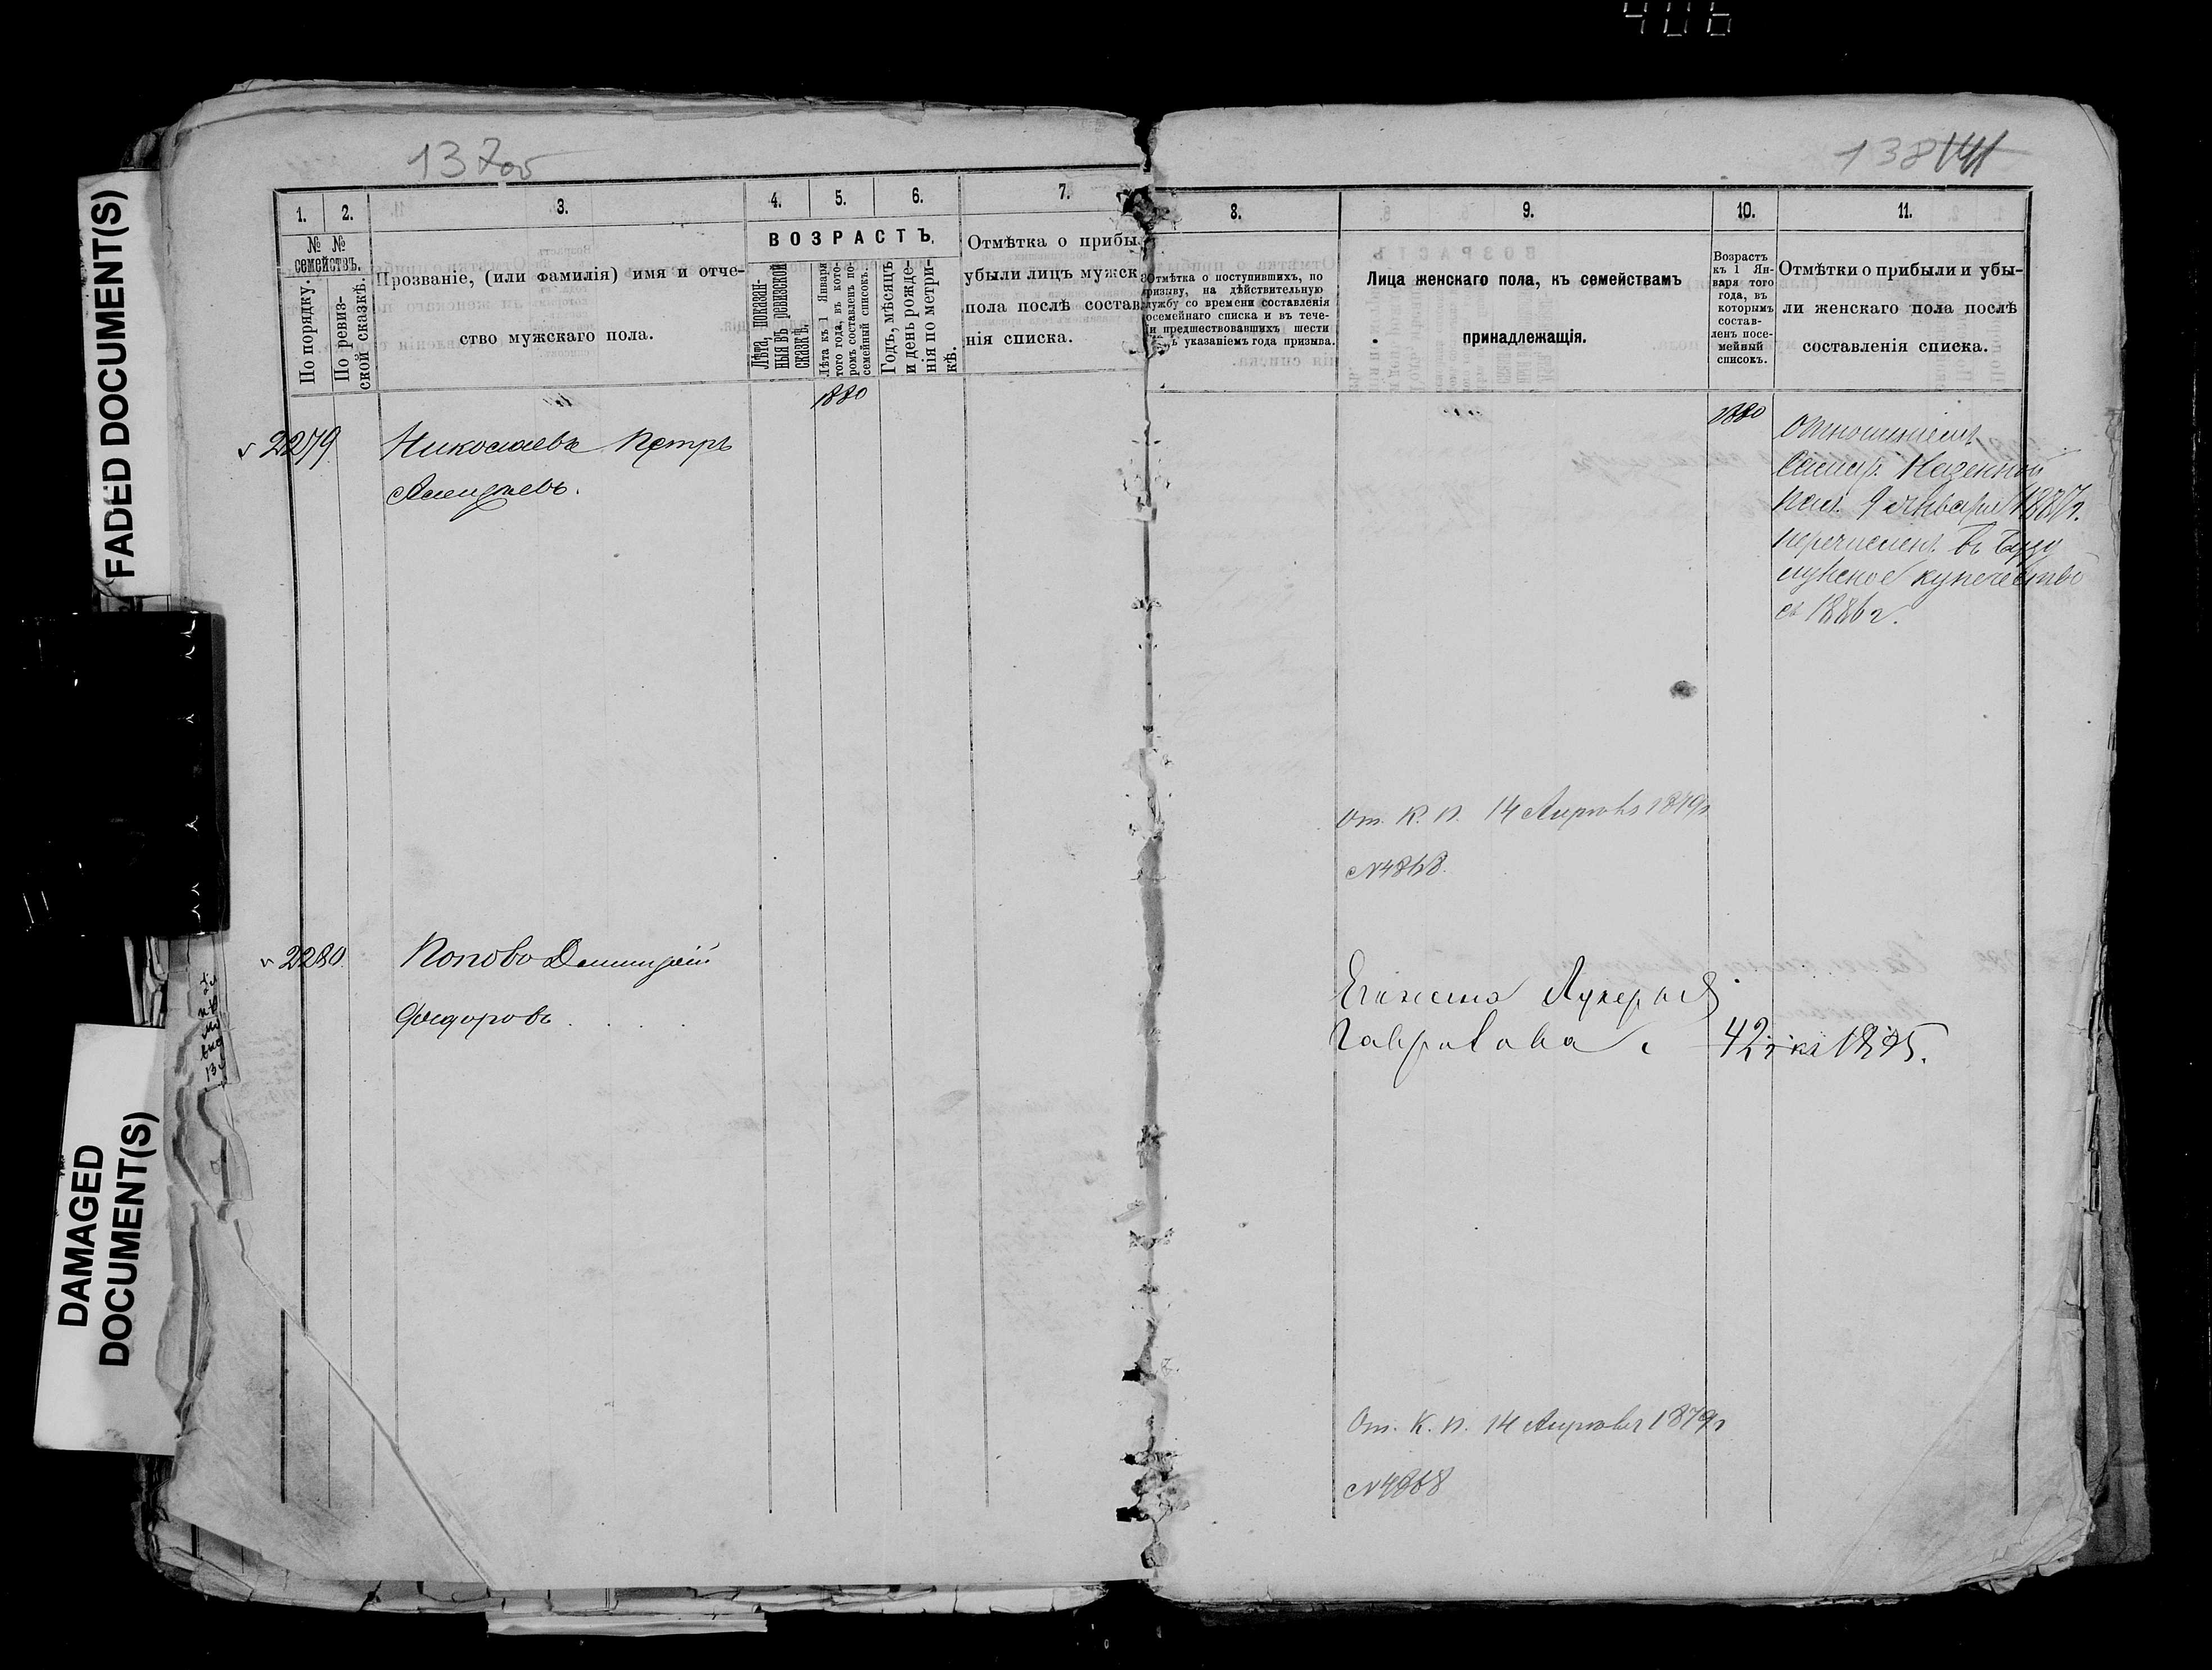 406
FADED DOCUMENT(S)
DAMAGED
DOCUMENT(S)
137об
1. 2. 3. 4. 5. 6. 7.
№ №
семействъ.
По порядку.
По ревиз-
ской сказкѣ.
Прозваніе, (или фамилія) имя и отче-
ство мужскаго пола.
ВОЗРАСТЪ.
Лѣта, показан-
ныя въ ревизской
сказкѣ.
Лѣта къ 1 Января
того года, въ кото-
ромъ составленъ по-
семейный списокъ.
Годъ, мѣсяцъ
и день рожде-
нія по метри-
кѣ.
Отмѣтка о прибы
убыли лицъ мужск
пола послѣ состав
нія списка.
1880
2279 Николаевъ Петръ
2280 Поповъ Димитрій
Федоровъ . . . .
138 141
8. 9. 10. 11.
Отмѣтка о поступившихъ, по
призыву, на дѣйствительную
службу со времени составленія
посемейнаго списка и въ тече-
и предшествовавшихъ шести
указаніемъ года призыва.
Лица женскаго пола, къ семействамъ
принадлежащія.
Возрастъ
къ 1 Ян-
варя того
года, въ
которымъ
состав-
ленъ посе-
мейный
списокъ.
Отмѣтки о прибыли и убы-
ли женскаго пола послѣ
составленія списка.
1880
Отношеніемъ
Самар. Казенной
Пал. 9 Января 1887г.
перечисленъ въ Бузу
лукское купечество
съ 1886г.
От. К. П. 14 Апрѣля 1879г
№4868.
Его жена Лукерья
Гаврилова 42г къ 1895.
От. К. П. 14 Апрѣля 1879г
№4868